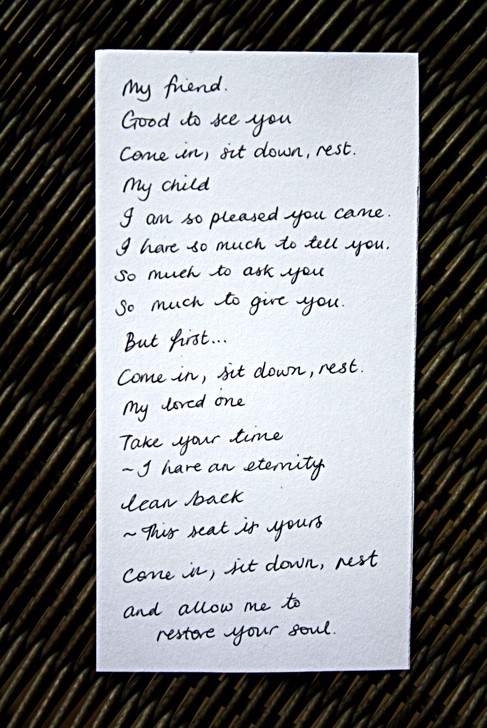 My friend.
Good to see you
Come in, sit down, rest.
My child
I am so pleased you came.
I have so much to tell you.
So much to ask you
So much to give you.
But first...
Come in, sit down, rest.
My loved one
Take your time
~ I have an eternity
lean back
~ This seat is yours
Come in, sit down, rest
and allow me to
restore your soul.